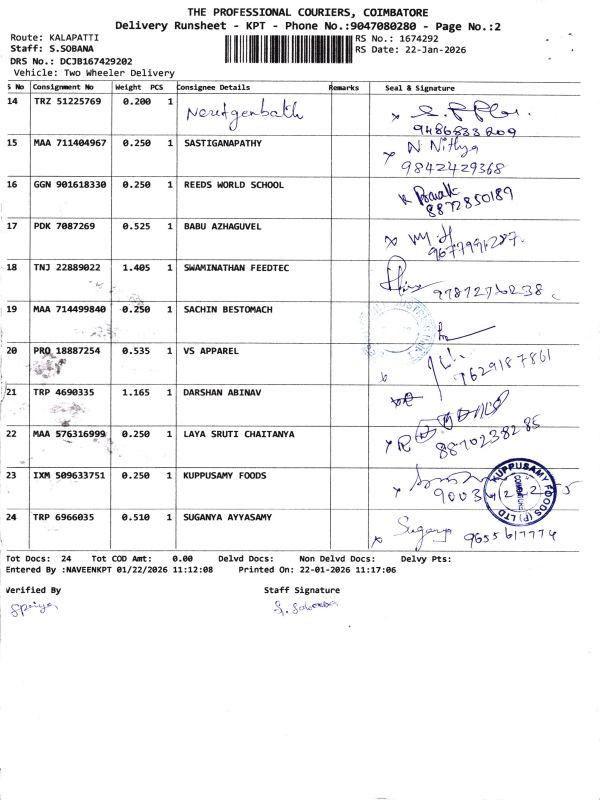 THE PROFESSIONAL COURIERS, COIMBATORE
Delivery Runsheet - KPT - Phone No.:9047080280 - Page No.:2
Route: KALAPATTI RS No.: 1674292
Staff: S.SOBANA RS Date: 22-Jan-2026
DRS No.: DCJB167429202
Vehicle: Two Wheeler Delivery
S No Consignment No Weight PCS Consignee Details Remarks Seal & Signature
14 TRZ 51225769 0.200 1
15 MAA 711404967 0.250 1 SASTIGANAPATHY N Nithya
9842429368
16 GGN 901618330 0.250 1 REEDS WORLD SCHOOL
8872850189
17 PDK 7087269 0.525 1 BABU AZHAGUVEL
18 TNJ 22889022 1.405 1 SWAMINATHAN FEEDTEC
19 MAA 714499840 0.250 1 SACHIN BESTOMACH
20 PRO 18887254 0.535 1 VS APPAREL
7629187861
21 TRP 4690335 1.165 1 DARSHAN ABINAV
22 MAA 576316999 0.250 1 LAYA SRUTI CHAITANYA
8870238285
23 IXM 509633751 0.250 1 KUPPUSAMY FOODS
KUPPUSAMY FOODS (P) LTD
24 TRP 6966035 0.510 1 SUGANYA AYYASAMY Suganya 9655617774
Tot Docs: 24 Tot COD Amt: 0.00 Delvd Docs: Non Delvd Docs: Delvy Pts:
Entered By :NAVEENKPT 01/22/2026 11:12:08 Printed On: 22-01-2026 11:17:06
Verified By Staff Signature
S. Sobana